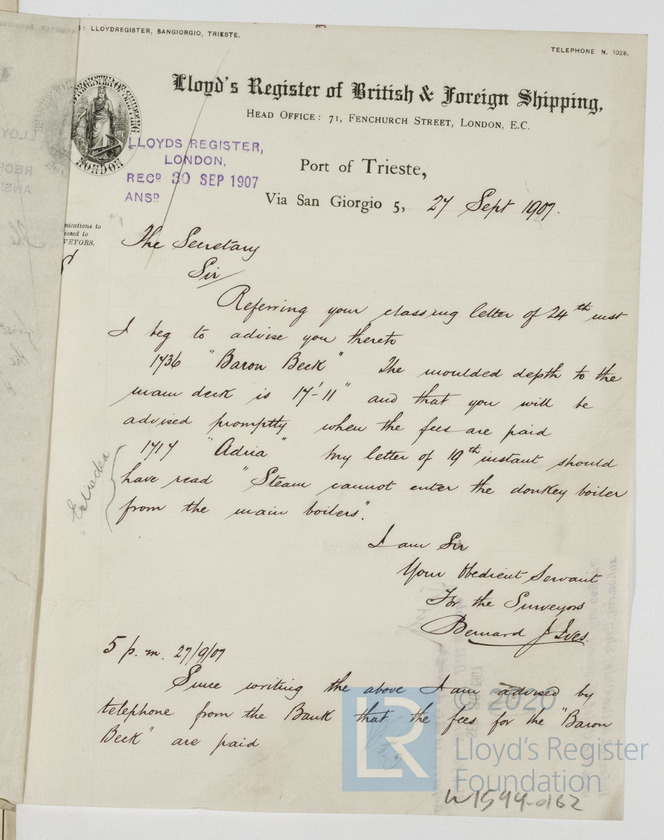 : LLOYDREGISTER, SANGIORGIO, TRIESTE.
TELEPHONE N. 1028.
Lloyd's Register of British & Foreign Shipping,
HEAD OFFICE: 71, FENCHURCH STREET, LONDON, E.C.
LONDON
LLOYDS REGISTER,
LONDON,
RECD 30 SEP 1907
ANSD
Port of Trieste,
Via San Giorgio 5, 27 Sept 1907.
nications to
essed to
VEYORS.
The Secretary
Sir
Referring your classing letter of 24th inst
I beg to advise you thereto
1736 "Baron Beck" The moulded depth to the
main deck is 17'-11" and that you will be
advised promptly when the fees are paid
1717 "Adria" My letter of 19th instant should
have read "Steam cannot enter the donkey boiler
from the main boilers".
I am Sir
Your Obedient Servant
For the Surveyors
Bernard J Ives
5 p.m. 27/9/07
Since writing the above I am advised by
telephone from the Bank that the fees for the "Baron
Beck" are paid
© 2020
LR
Lloyd's Register
Foundation
W1594-0162